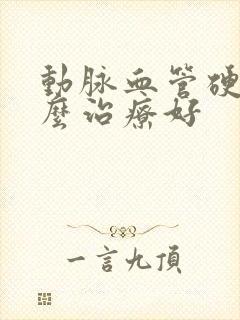 動脈血管硬
麼治療好
一言九頂